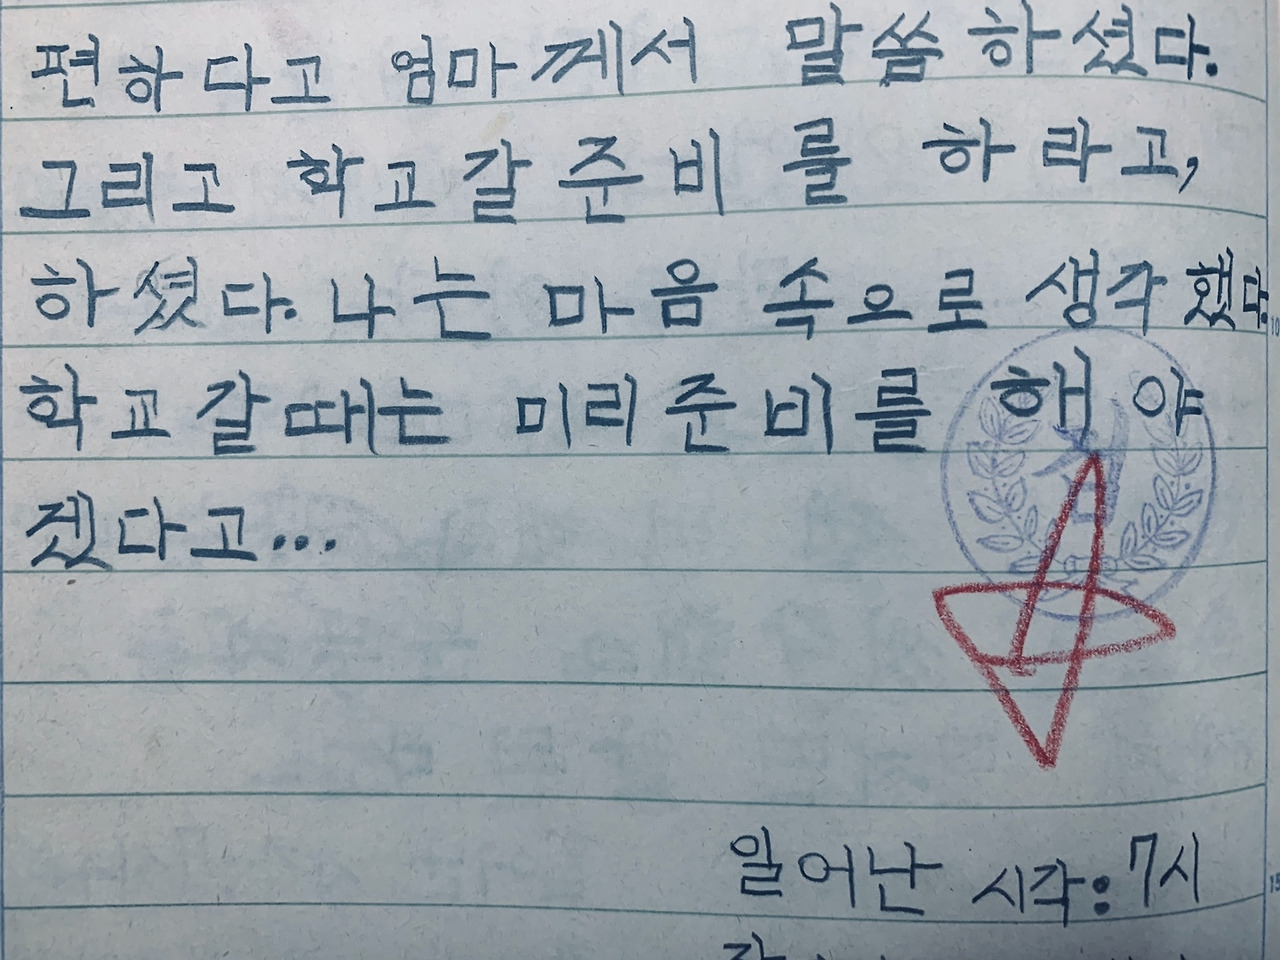 편하다고 엄마께서 말씀하셨다.
그리고 학교갈준비를 하라고,
하셨다. 나는 마음 속으로 생각했다.
학교갈때는 미리준비를 해야
겠다고...
검
일어난 시각: 7시